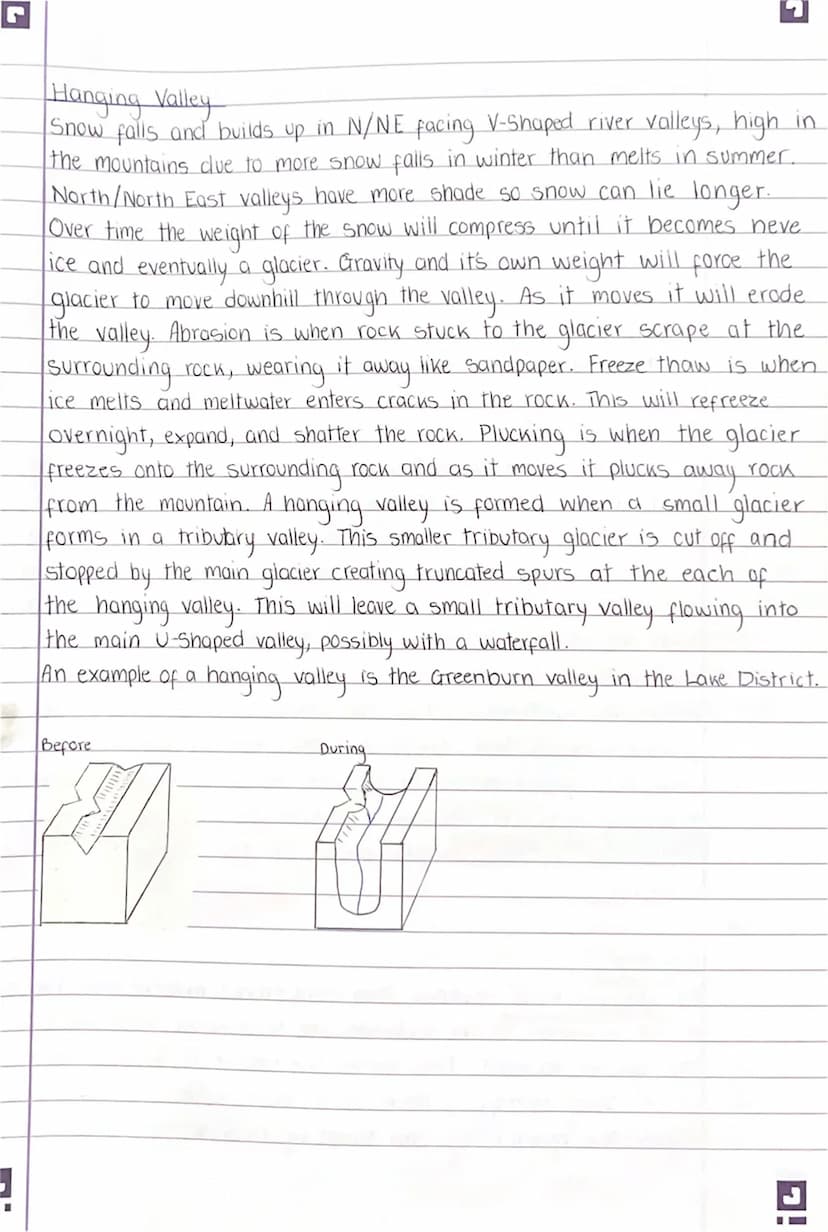 Hanging Valley
Snow falls and builds up in N/NE facing V-Shaped river valleys, high in
the mountains due to more snow falls in winter than melts in summer.
North/North East valleys have more shade so snow can lie longer.
Over time the weight of the snow will compress until it becomes neve
ice and eventually a glacier. Gravity and it's own weight will force the
glacier to move downhill through the valley. As it moves it will erode
the valley. Abrasion is when rock stuck to the glacier scrape at the
surrounding rock, wearing it away like sandpaper. Freeze thaw is when
ice melts and meltwater enters cracks in the rock. This will refreeze
overnight, expand, and shatter the rock. Plucking is when the glacier
freezes onto the surrounding rock and as it moves it plucks away rock
from the mountain. A hanging valley is formed when a small glacier
forms in a tributary valley. This smaller tributary glacier is cut off and
stopped by the main glacier creating truncated spurs at the each of
the hanging valley. This will leave a small tributary valley flowing into
the main U-Shaped valley, possibly with a waterfall.
An example of a hanging valley is the Greenburn valley in the Lake District.
Before
During